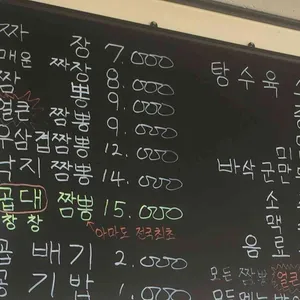 짜 장 7.000
매운 짜장 8.000
짬 뽕 9.000
얼큰 짬뽕 9.000
우삼겹짬뽕 12.000
낙지 짬뽕 14.000
곱대창창 짬뽕 15.000
아마도 전국최초
곱 배 기 2.000
공 기 밥 1.000
탕 수 육
미
바삭군만
소
맥
음 료
모든 짬뽕 얼큰